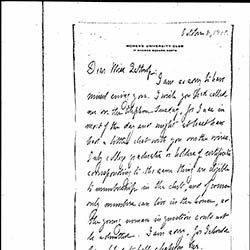 October 8, 1917.
WOMEN'S UNIVERSITY CLUB
Dear Miss
I am so sorry to have
missed seeing you. I wish you had called
me on the telephone Sunday, for I was in
most of the day and might at least have
had a little chat with you on the wire.
Only college graduates or holders of certificates
corresponding to the same thing are eligible
to membership in the club, and of course
only members can live in the house, so
the young woman in question could not
be admitted. I am sorry, for